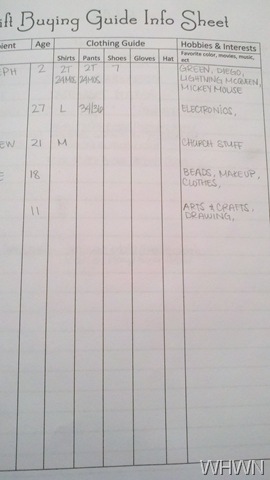 ift Buying Guide Info Sheet
ient Age Clothing Guide Hobbies & Interests
Shirts Pants Shoes Gloves Hat Favorite color, movies, music, ect
PH 2 2T 24MOS 2T 24MOS 7 GREEN, DIEGO,
LIGHTNING MCQUEEN,
MICKEY MOUSE
27 L 34/36 ELECTRONICS,
EW 21 M CHURCH STUFF
E 18 BEADS, MAKEUP,
CLOTHES,
11 ARTS & CRAFTS,
DRAWING,
WHWN